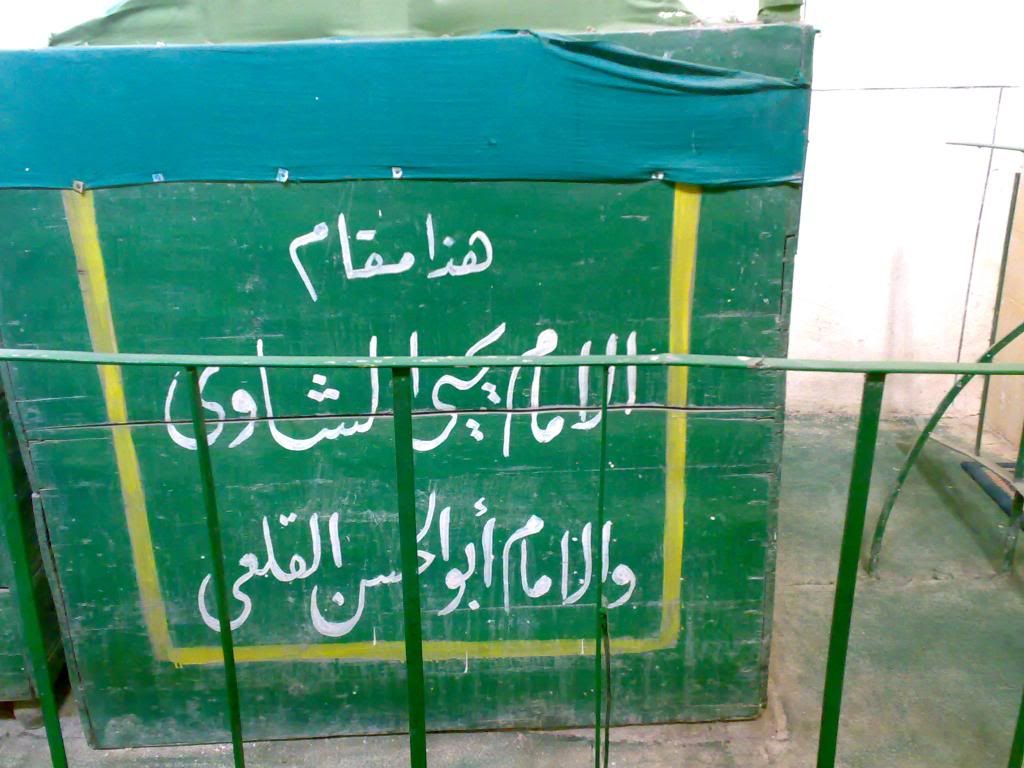 هذا مقام
الامام يحيى الشاوى
والامام أبو الحسن القلعى